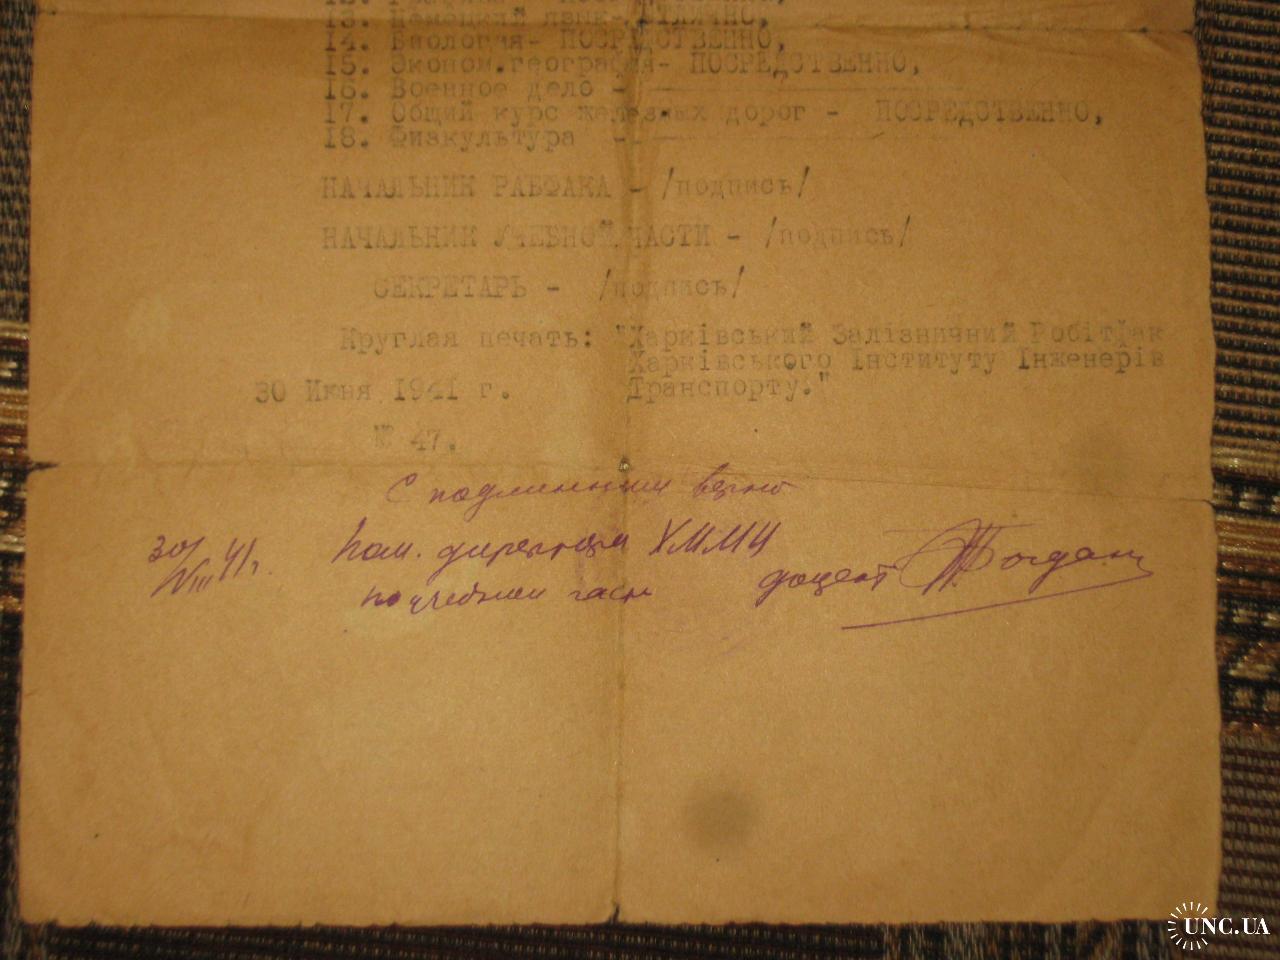 13. Немецкий язык- ОТЛИЧНО,
14. Биология- ПОСРЕДСТВЕННО,
15. Эконом.география- ПОСРЕДСТВЕННО,
16. Военное дело -
17. Общий курс железных дорог - ПОСРЕДСТВЕННО,
18. Физкультура -
НАЧАЛЬНИК РАБФАКА - /подпись/
НАЧАЛЬНИК УЧЕБНОЙ ЧАСТИ - /подпись/
СЕКРЕТАРЬ - /подпись/
Круглая печать: "Харківський Залізничний Робітфак
Харківського Інституту Інженерів
30 Июня 1941 г. Транспорту."
№ 47.
С подлинным верно
30/VIII 41г. Пом. директора ХММИ
по учебной части доцент Богдан
UNC.UA